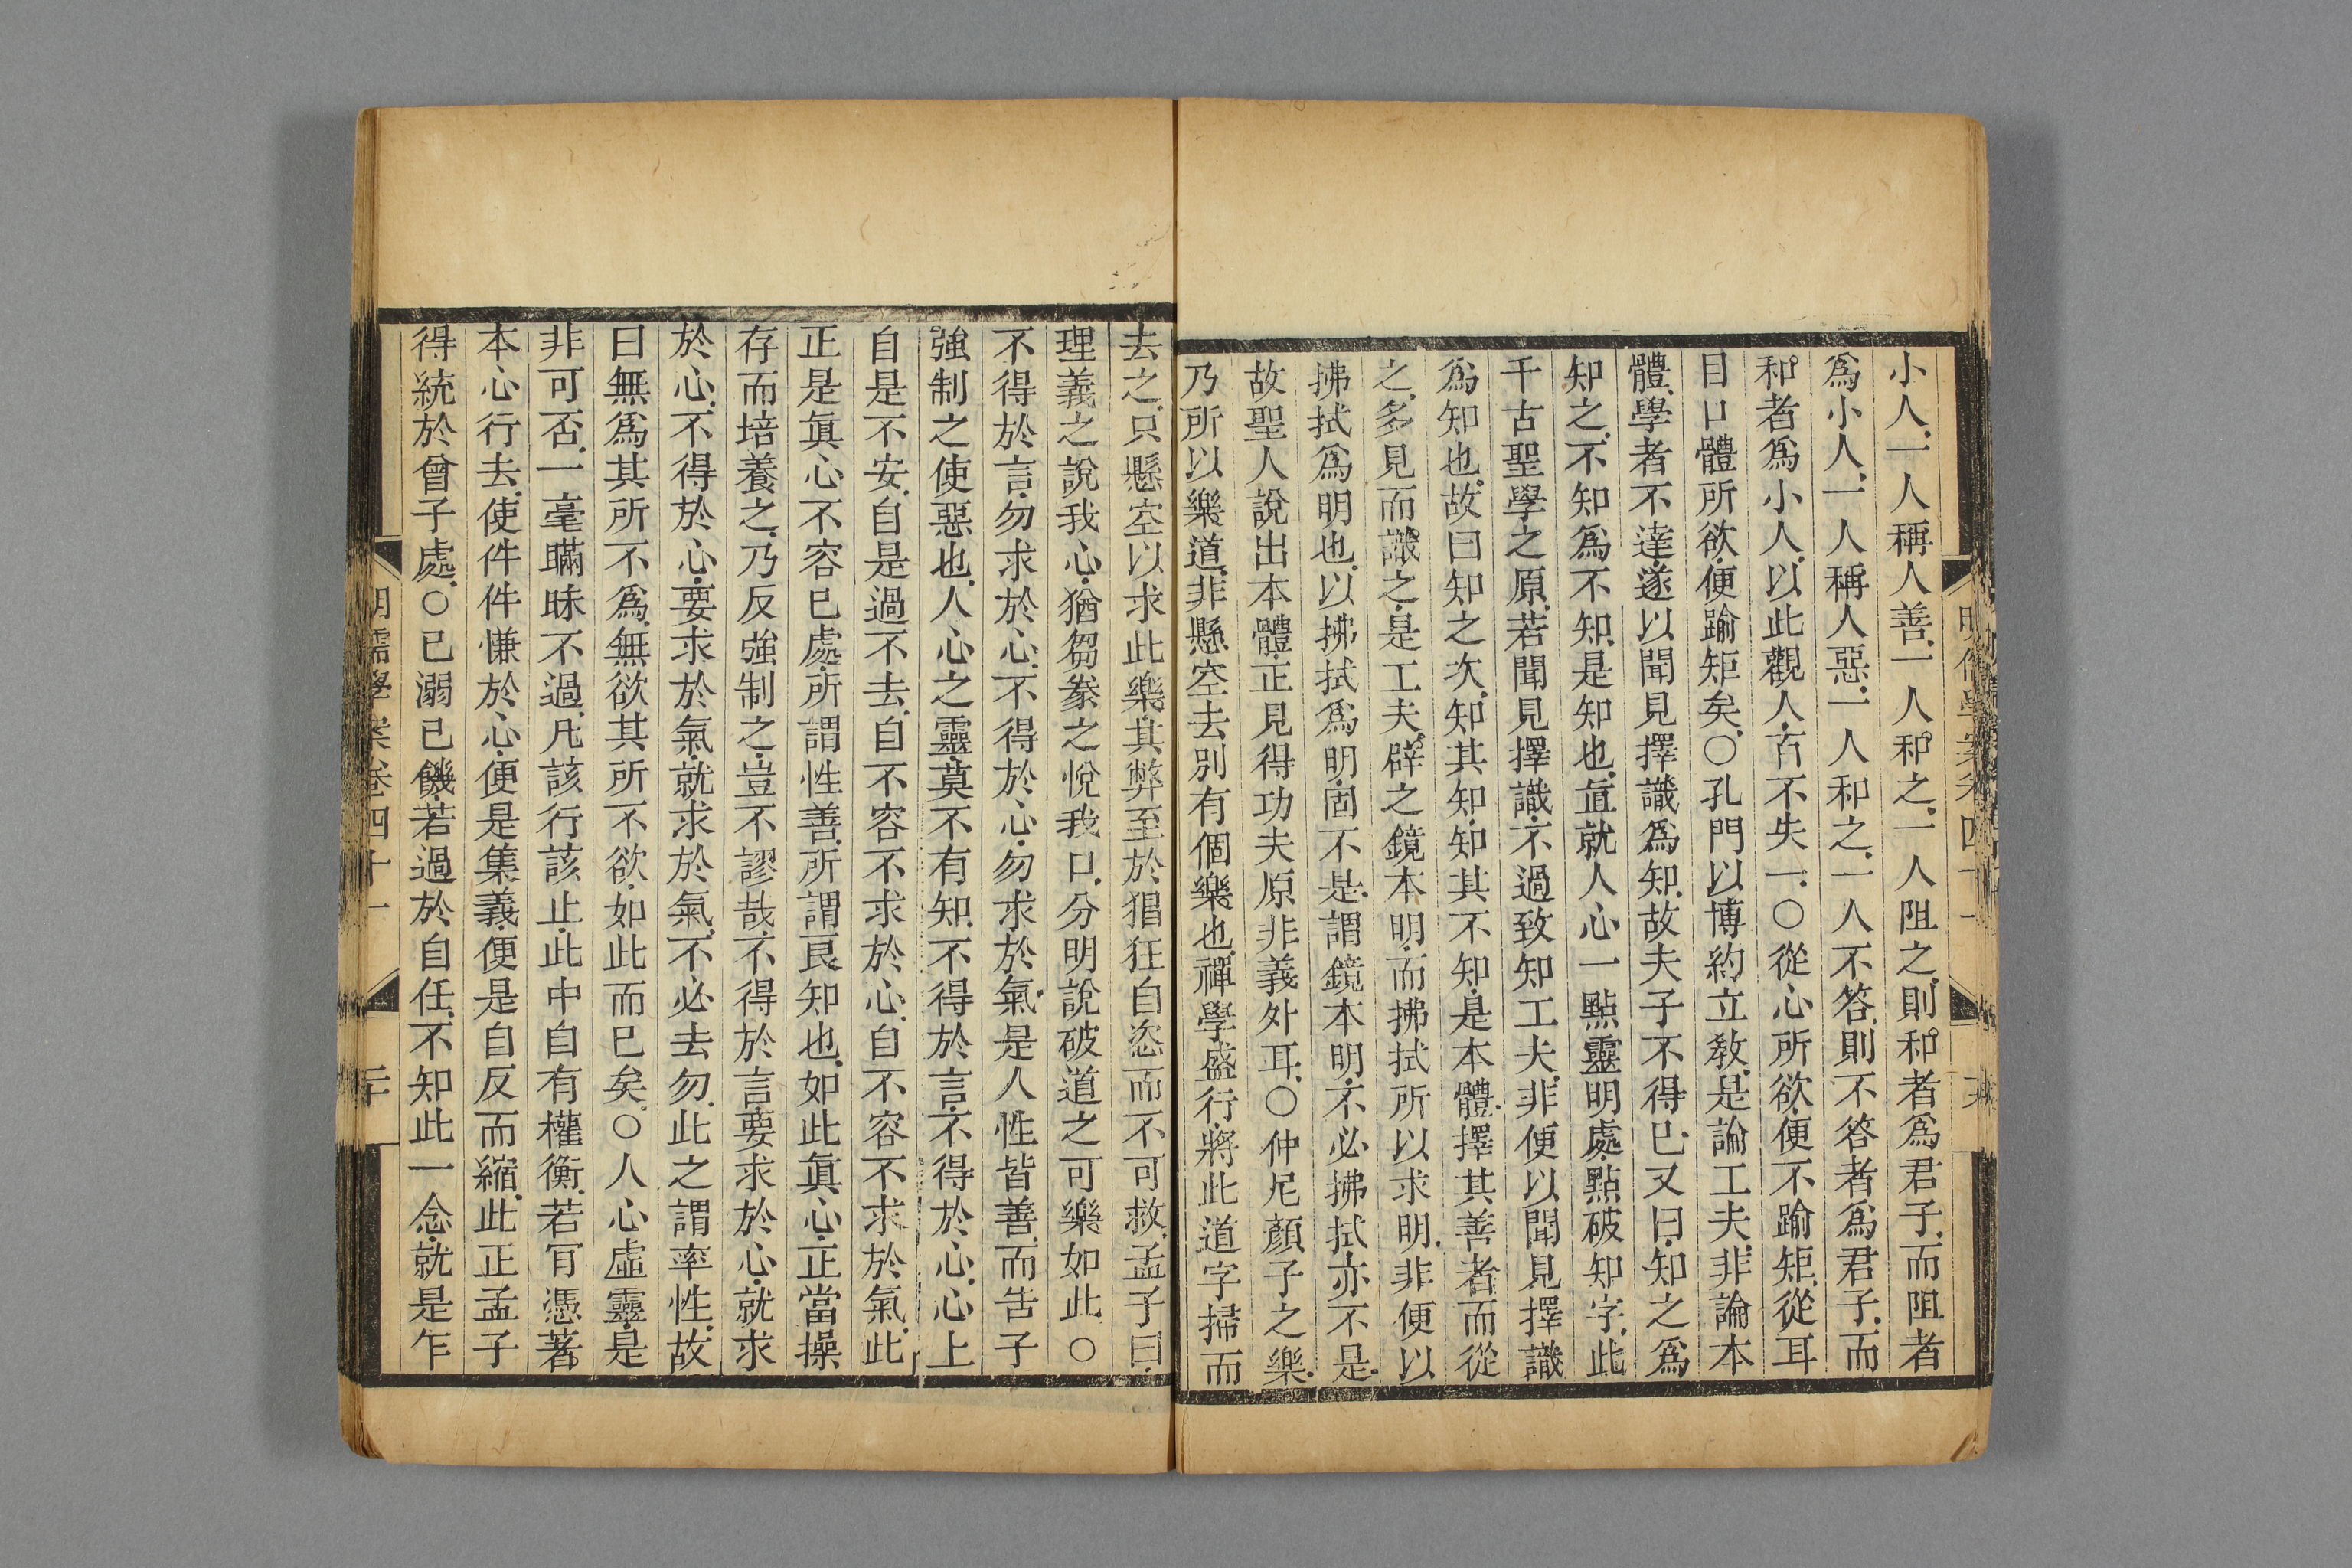 小人一人稱人善一人和之一人阻之則和者爲君子而阻者
爲小人一人稱人惡一人和之一人不答則不答者爲君子而
和者爲小人以此觀人百不失一○從心所欲便不踰矩從耳
目口體所欲便踰矩矣○孔門以博約立敎是論工夫非論本
體學者不達遂以聞見擇識爲知故夫子不得已又曰知之爲
知之不知爲不知是知也直就人心一點靈明處點破知字此
千古聖學之原若聞見擇識不過致知工夫非便以聞見擇識
爲知也故曰知之次知其知知其不知是本體擇其善者而從
之多見而識之是工夫辟之鏡本明而拂拭所以求明非便以
拂拭爲明也以拂拭爲明固不是謂鏡本明不必拂拭亦不是
故聖人說出本體正見得功夫原非義外耳○仲尼顏子之樂
乃所以樂道非懸空去別有個樂也禪學盛行將此道字掃而
去之只懸空以求此樂其弊至於猖狂自恣而不可救孟子曰
理義之說我心猶芻豢之悅我口分明說破道之可樂如此○
不得於言勿求於心不得於心勿求於氣是人性皆善而告子
強制之使惡也人心之靈莫不有知不得於言不得於心心上
自是不安自是過不去自不容不求於心自不容不求於氣此
正是眞心不容已處所謂性善所謂良知也如此眞心正當操
存而培養之乃反強制之豈不謬哉不得於言要求於心就求
於心不得於心要求於氣就求於氣不必去勿此之謂率性故
曰無爲其所不爲無欲其所不欲如此而已矣○人心虛靈是
非可否一毫瞞昧不過凡該行該止此中自有權衡若肎憑著
本心行去使件件慊於心便是集義便是自反而縮此正孟子
得統於曾子處○已溺已饑若過於自任不知此一念就是乍
明儒學案卷四十一
二十